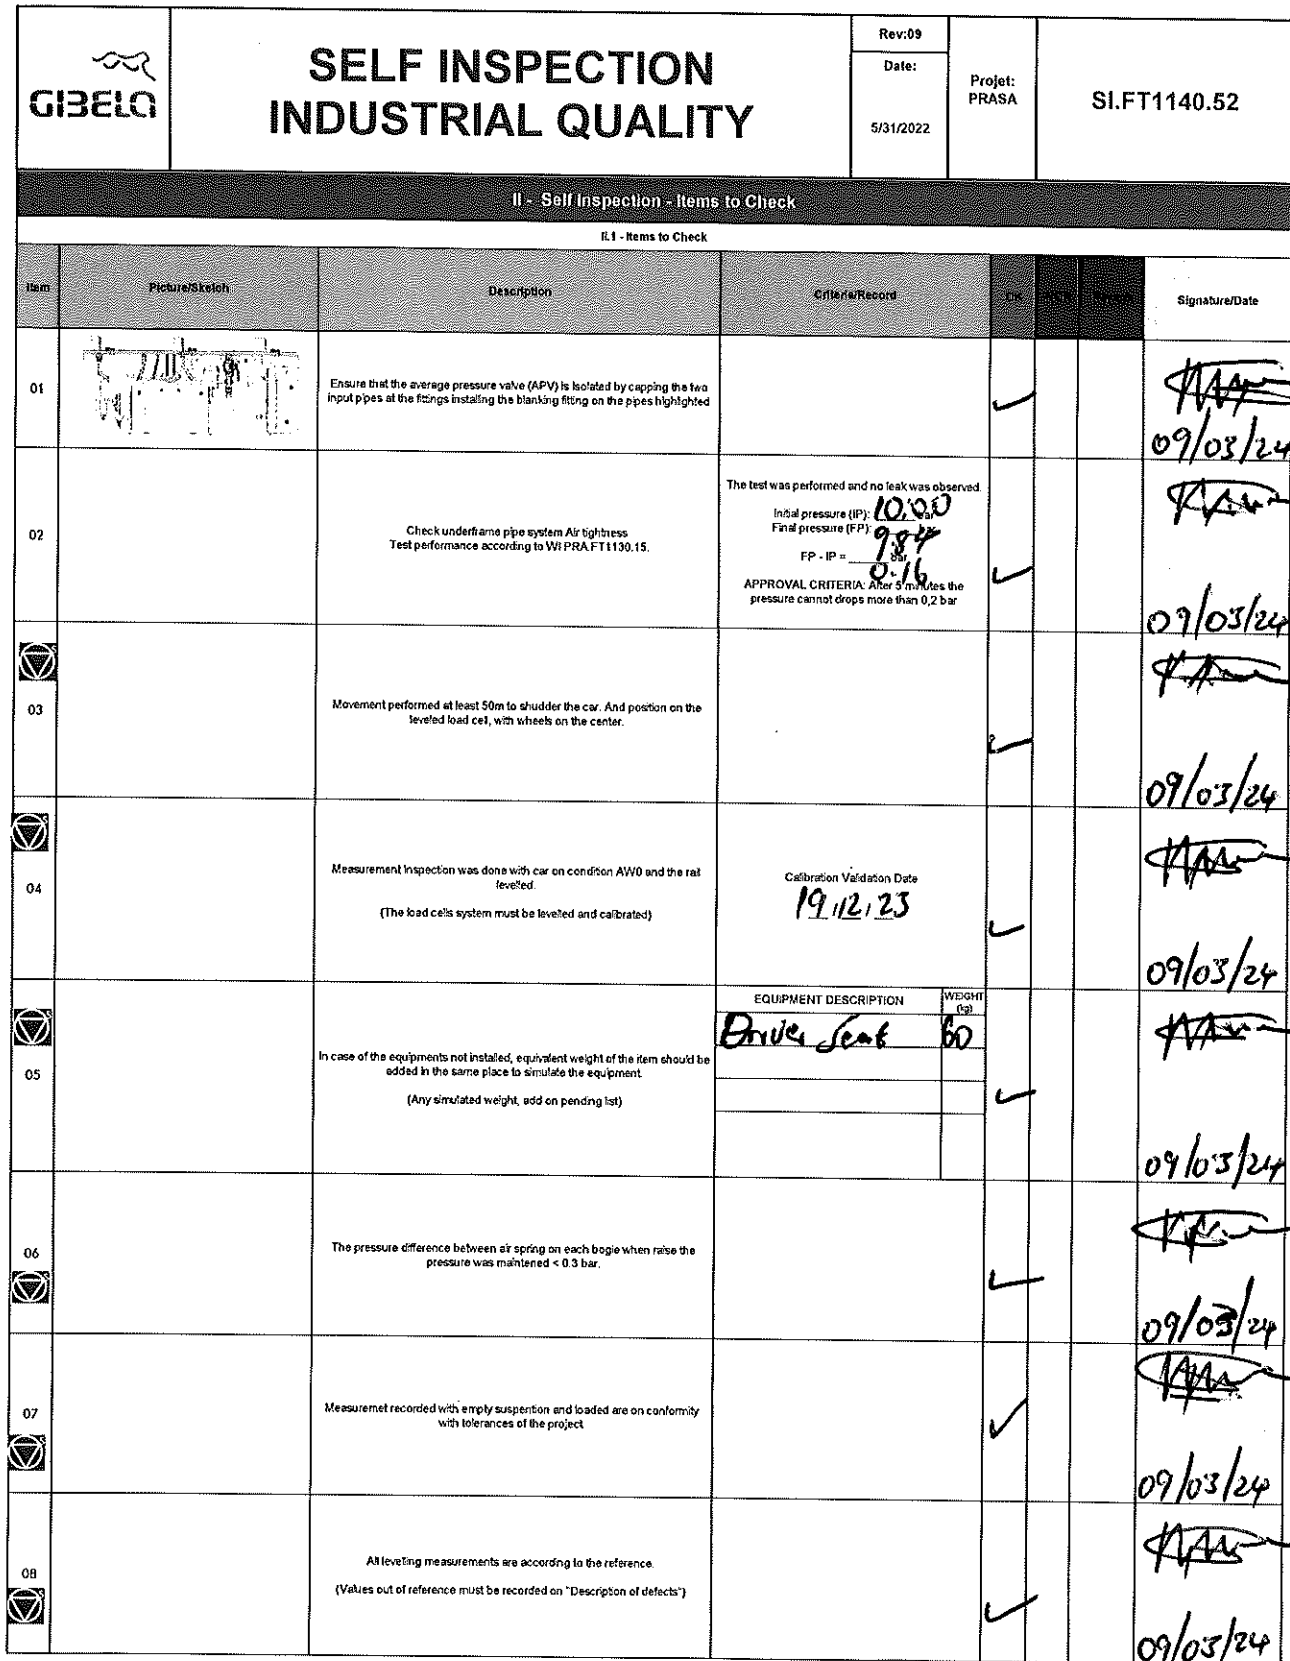 GIBELA
SELF INSPECTION
INDUSTRIAL QUALITY
Rev:09
Date:
5/31/2022
Projet:
PRASA
SI.FT1140.52
II - Self Inspection - Items to Check
II.1 - Items to Check
Item
Picture/Sketch
Description
Criteria/Record
OK
Signature/Date
01
Ensure that the average pressure valve (APV) is isolated by capping the two
input pipes at the fittings installing the blanking fitting on the pipes highlighted
09/03/24
02
Check underframe pipe system Air tightness
Test performance according to WI PRA.FT1130.15.
The test was performed and no leak was observed.
Initial pressure (IP): 10.00 bar
Final pressure (FP): 9.84 bar
FP - IP = 0.16 bar
APPROVAL CRITERIA: After 5 minutes the
pressure cannot drops more than 0,2 bar
09/03/24
03
Movement performed at least 50m to shudder the car. And position on the
leveled load cell, with wheels on the center.
09/03/24
04
Measurement inspection was done with car on condition AW0 and the rail
levelled.
(The load cells system must be levelled and calibrated)
Calibration Validation Date
19/12/23
09/03/24
05
In case of the equipments not installed, equivalent weight of the item should be
added in the same place to simulate the equipment.
(Any simulated weight, add on pending list)
EQUIPMENT DESCRIPTION
WEIGHT
(kg)
Driver Seat 60
09/03/24
06
The pressure difference between air spring on each bogie when raise the
pressure was maintened < 0.3 bar.
09/03/24
07
Measuremet recorded with empty suspention and loaded are on conformity
with tolerances of the project
09/03/24
08
All leveling measurements are according to the reference.
(Values out of reference must be recorded on "Description of defects")
09/03/24